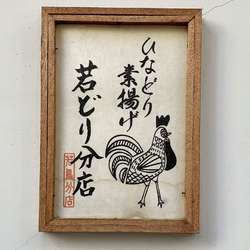 ひなどり
素揚げ
若どり分店